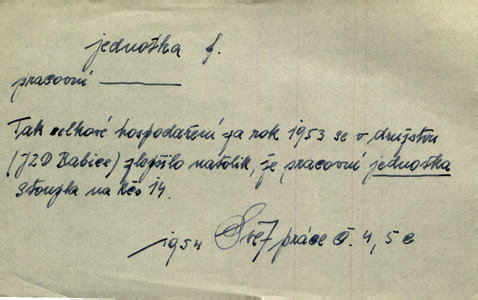 jednotka f.
pracovní
Tak celkové hospodaření za rok 1953 se v družstvu
(JZD Babice) zlepšilo natolik, že pracovní jednotka
stoupla na Kčs 14.
1954 práce č. 4, 5 c